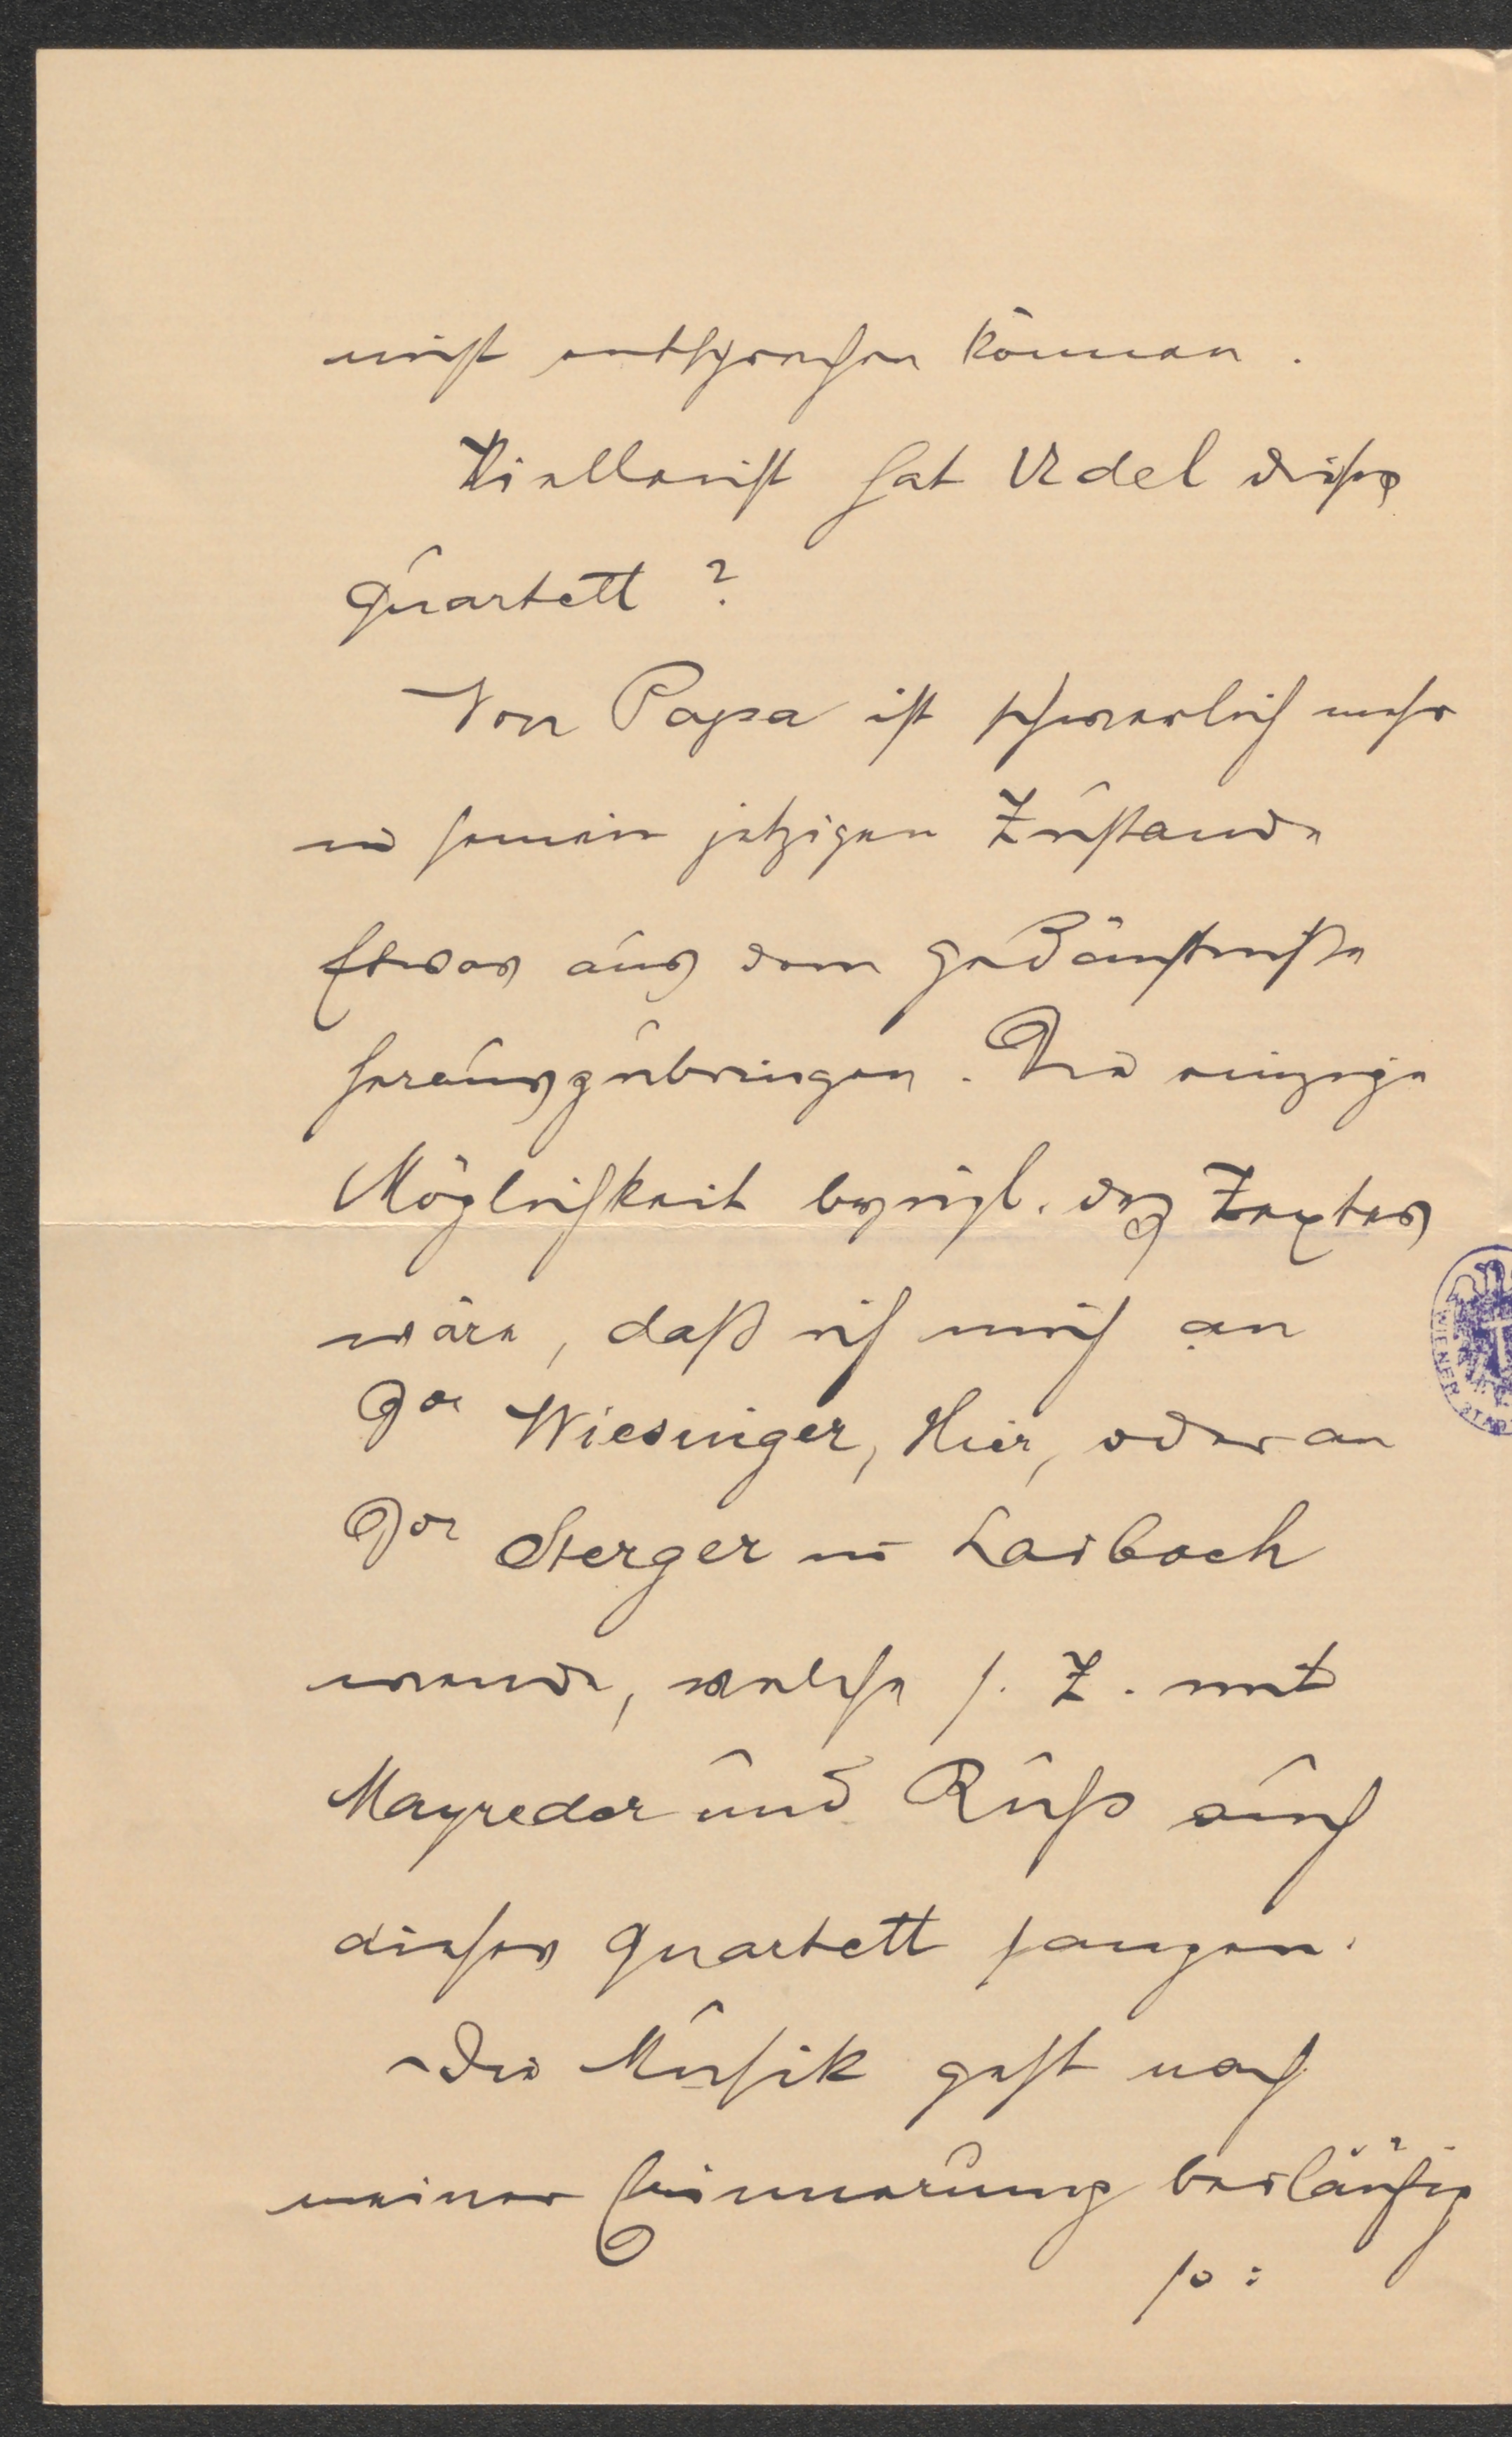 nicht entsprechen können.
Vielleicht hat Udel dieses
Quartett?
Von Papa ist schwerlich mehr
in seinem jetzigen Zustande
Etwas aus dem Gedächtniße
herauszubringen. Die einzige
Möglichkeit bezügl. des Textes
wäre, daß ich mich an
Dor Wiesinger, Hier, oder an
Dor Sterger in Laibach
wende, welche s. Z. mit
Mayreder und Ruß auch
dieses Quartett sangen.
Die Musik geht nach
meiner Erinnerung beiläufig
so:
WIENER STAD